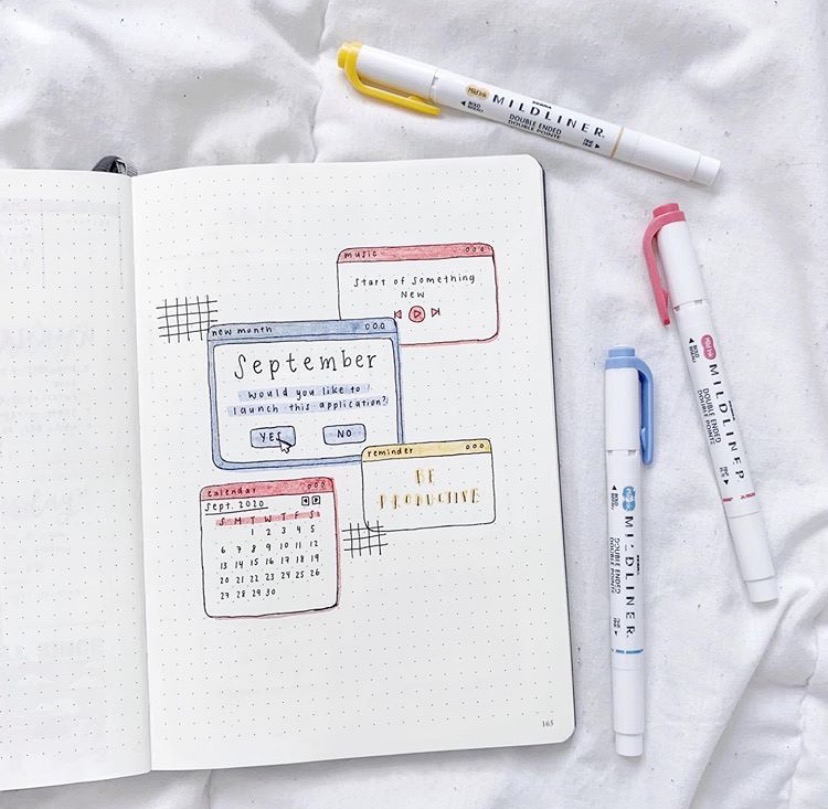 music
Start of Something
New
new month
September
would you like to
launch this application?
YES
NO
reminder
BE
PRODUCTIVE
calendar
Sept. 2020
S M T W T F S
1 2 3 4 5
6 7 8 9 10 11 12
13 14 15 16 17 18 19
20 21 22 23 24 25 26
27 28 29 30
165
ZEBRA
MILDLINER
DOUBLE ENDED
DOUBLE POINTE
MILDLINER
DOUBLE ENDED
DOUBLE POINTE
MILDLINER
DOUBLE ENDED
DOUBLE POINTE